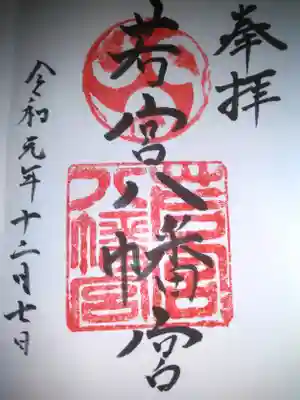 奉拝
若宮八幡宮
若宮八幡宮
令和元年十二月七日